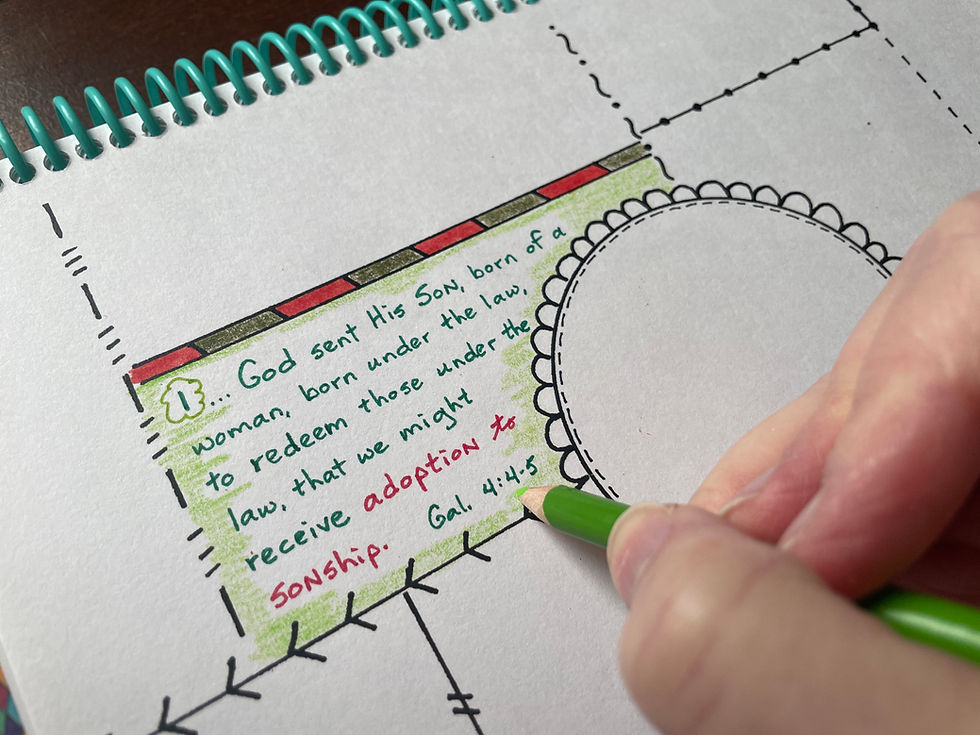 1... God sent His SoN, born of a
woman, born under the law,
to redeem those under the
law, that we might
receive adoption to
SoNship.
Gal. 4:4-5